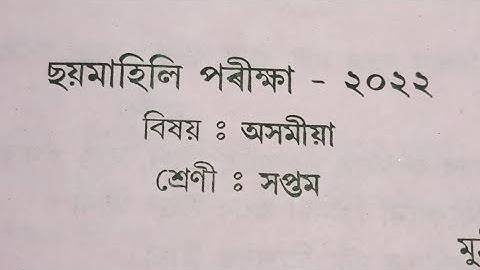 ছয়মাহিলি পৰীক্ষা - ২০২২
বিষয় : অসমীয়া
শ্ৰেণী : সপ্তম